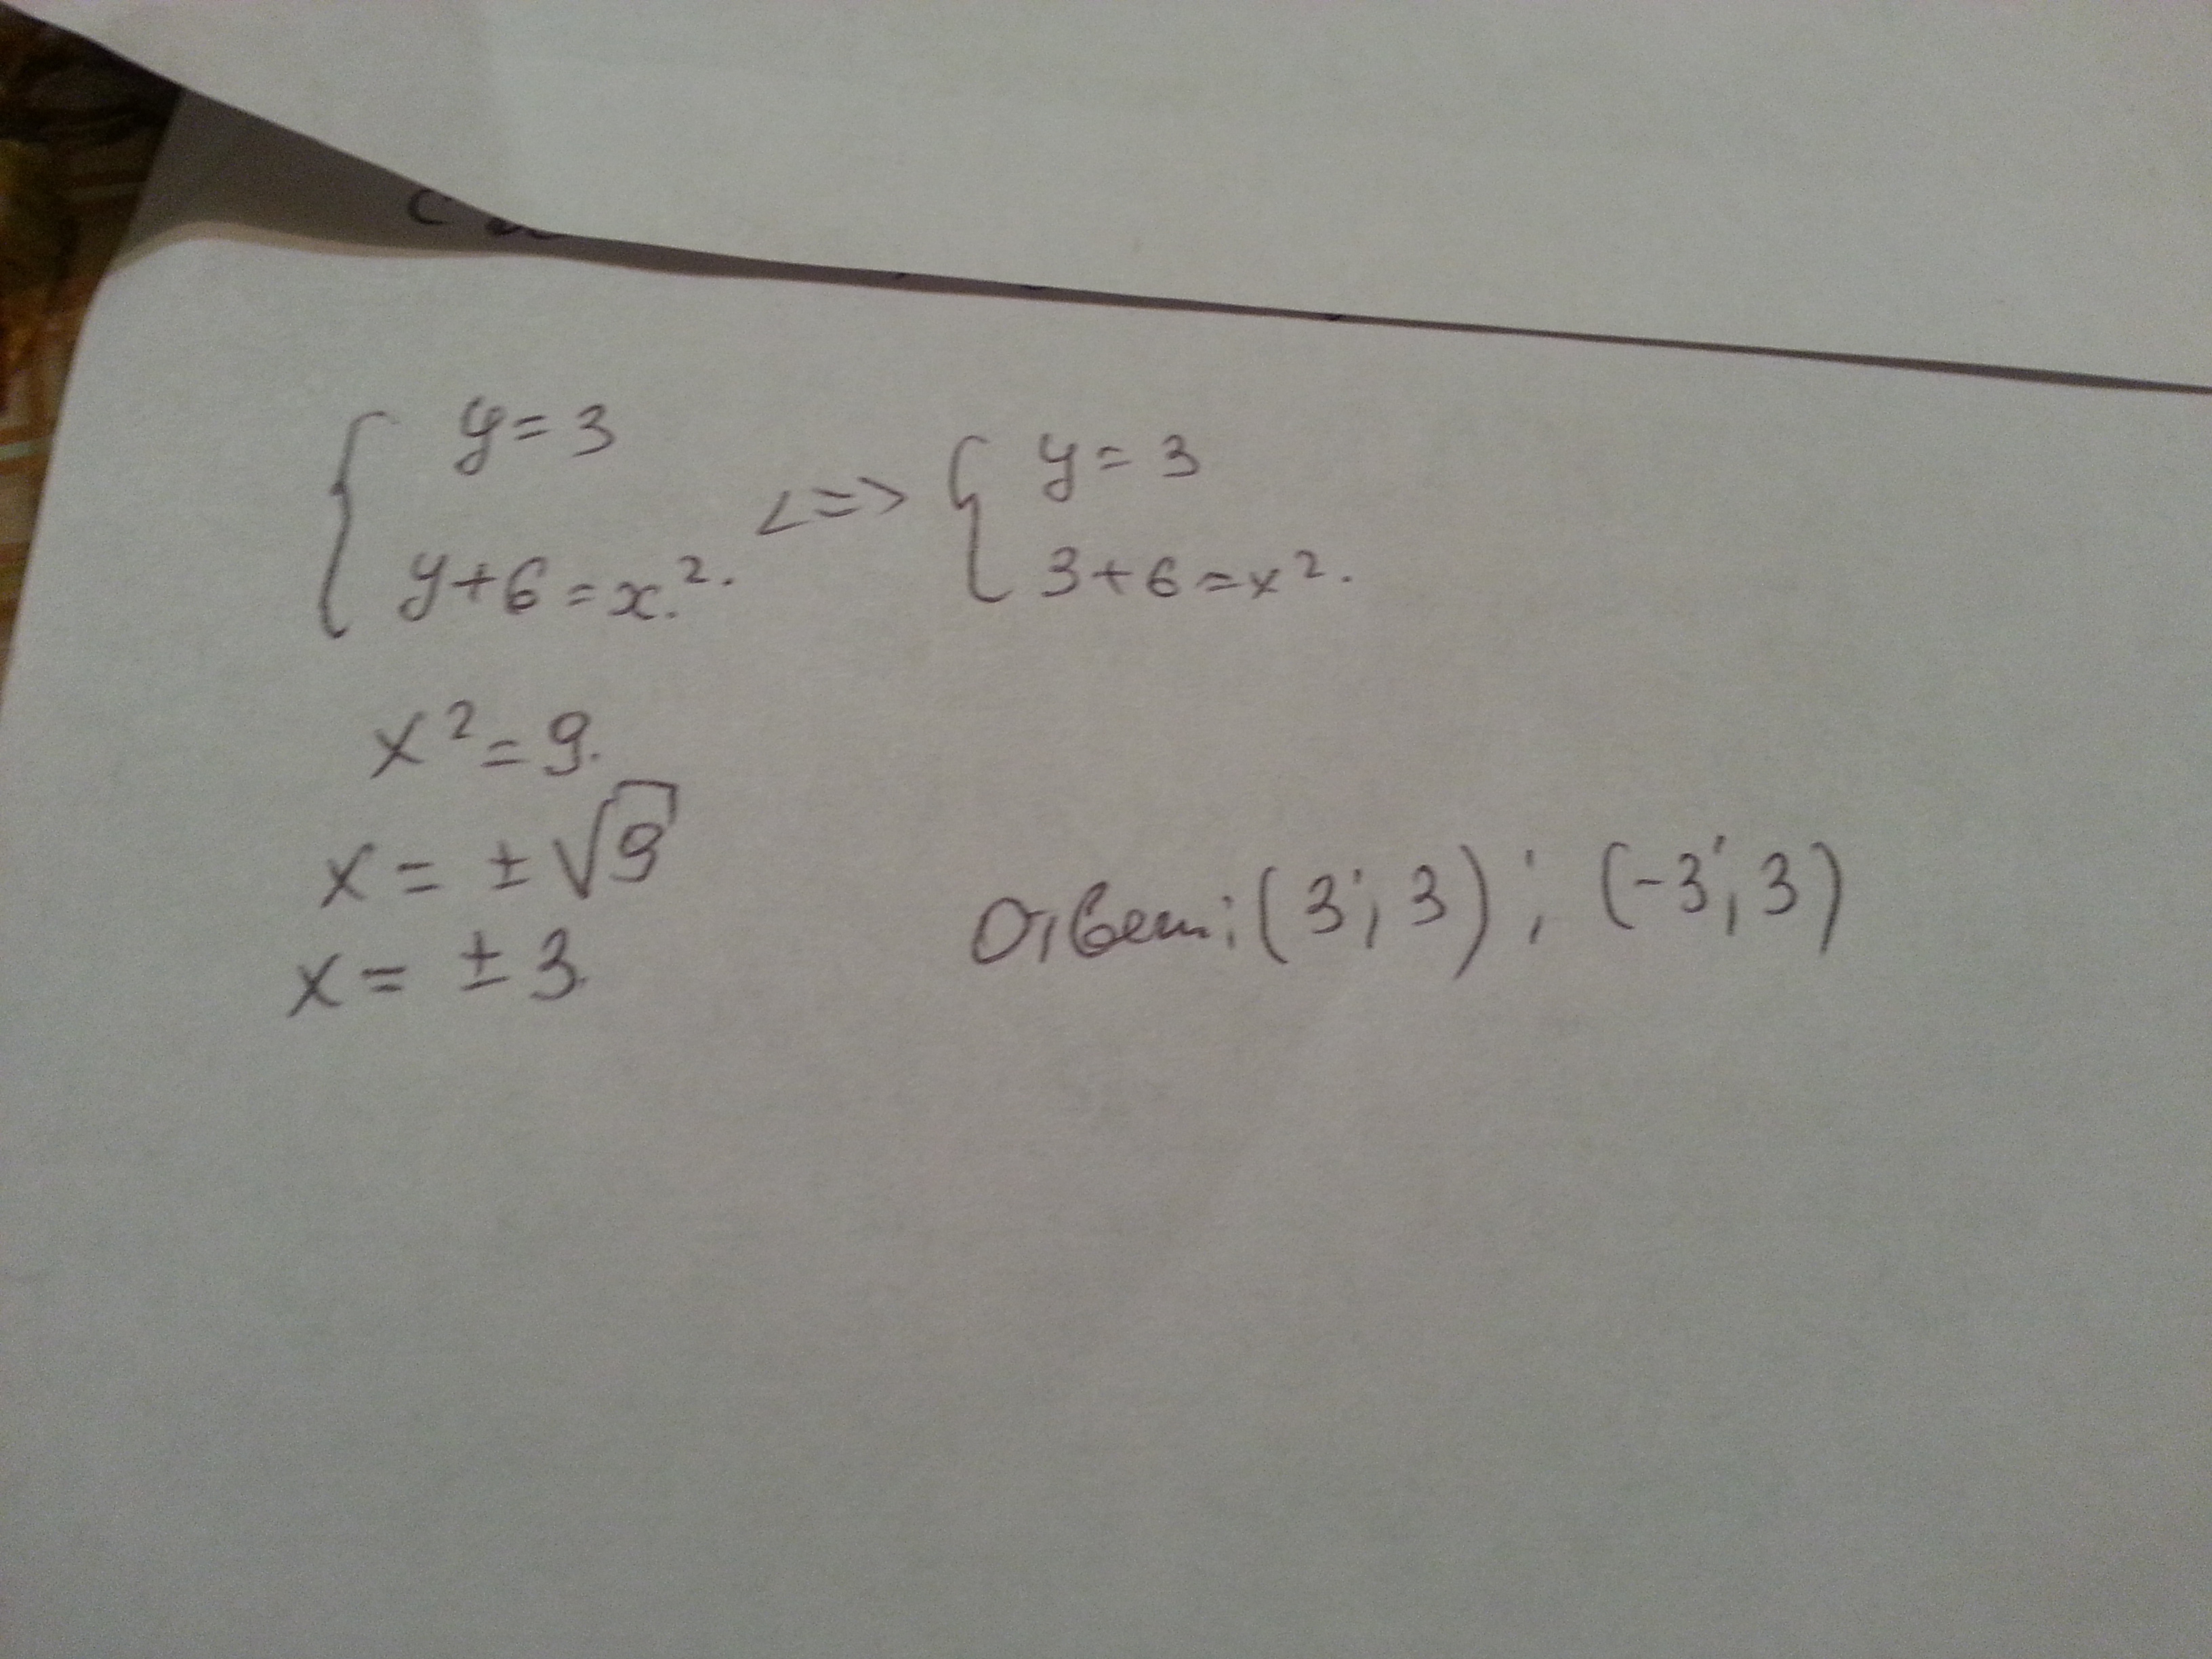 y = 3
y + 6 = x².
<=>
y = 3
3 + 6 = x².
x² = 9.
x = ± √9
x = ± 3.
Ответ: (3; 3); (-3; 3)